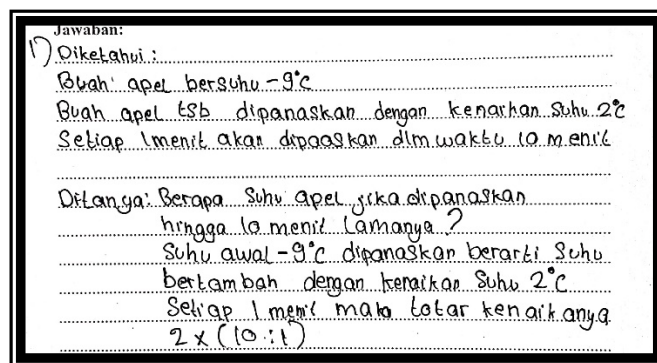 Jawaban:
1) Diketahui :
Buah apel bersuhu -9°C
Buah apel tsb dipanaskan dengan kenaikan suhu 2°C
Setiap 1 menit akan dipaaskan dlm waktu 10 menit
Ditanya: Berapa suhu apel jika dipanaskan
hingga 10 menit lamanya ?
Suhu awal -9°C dipanaskan berarti suhu
bertambah dengan kenaikan suhu 2°C
Setiap 1 menit maka totar kenaikanya
2 x (10 : 1)